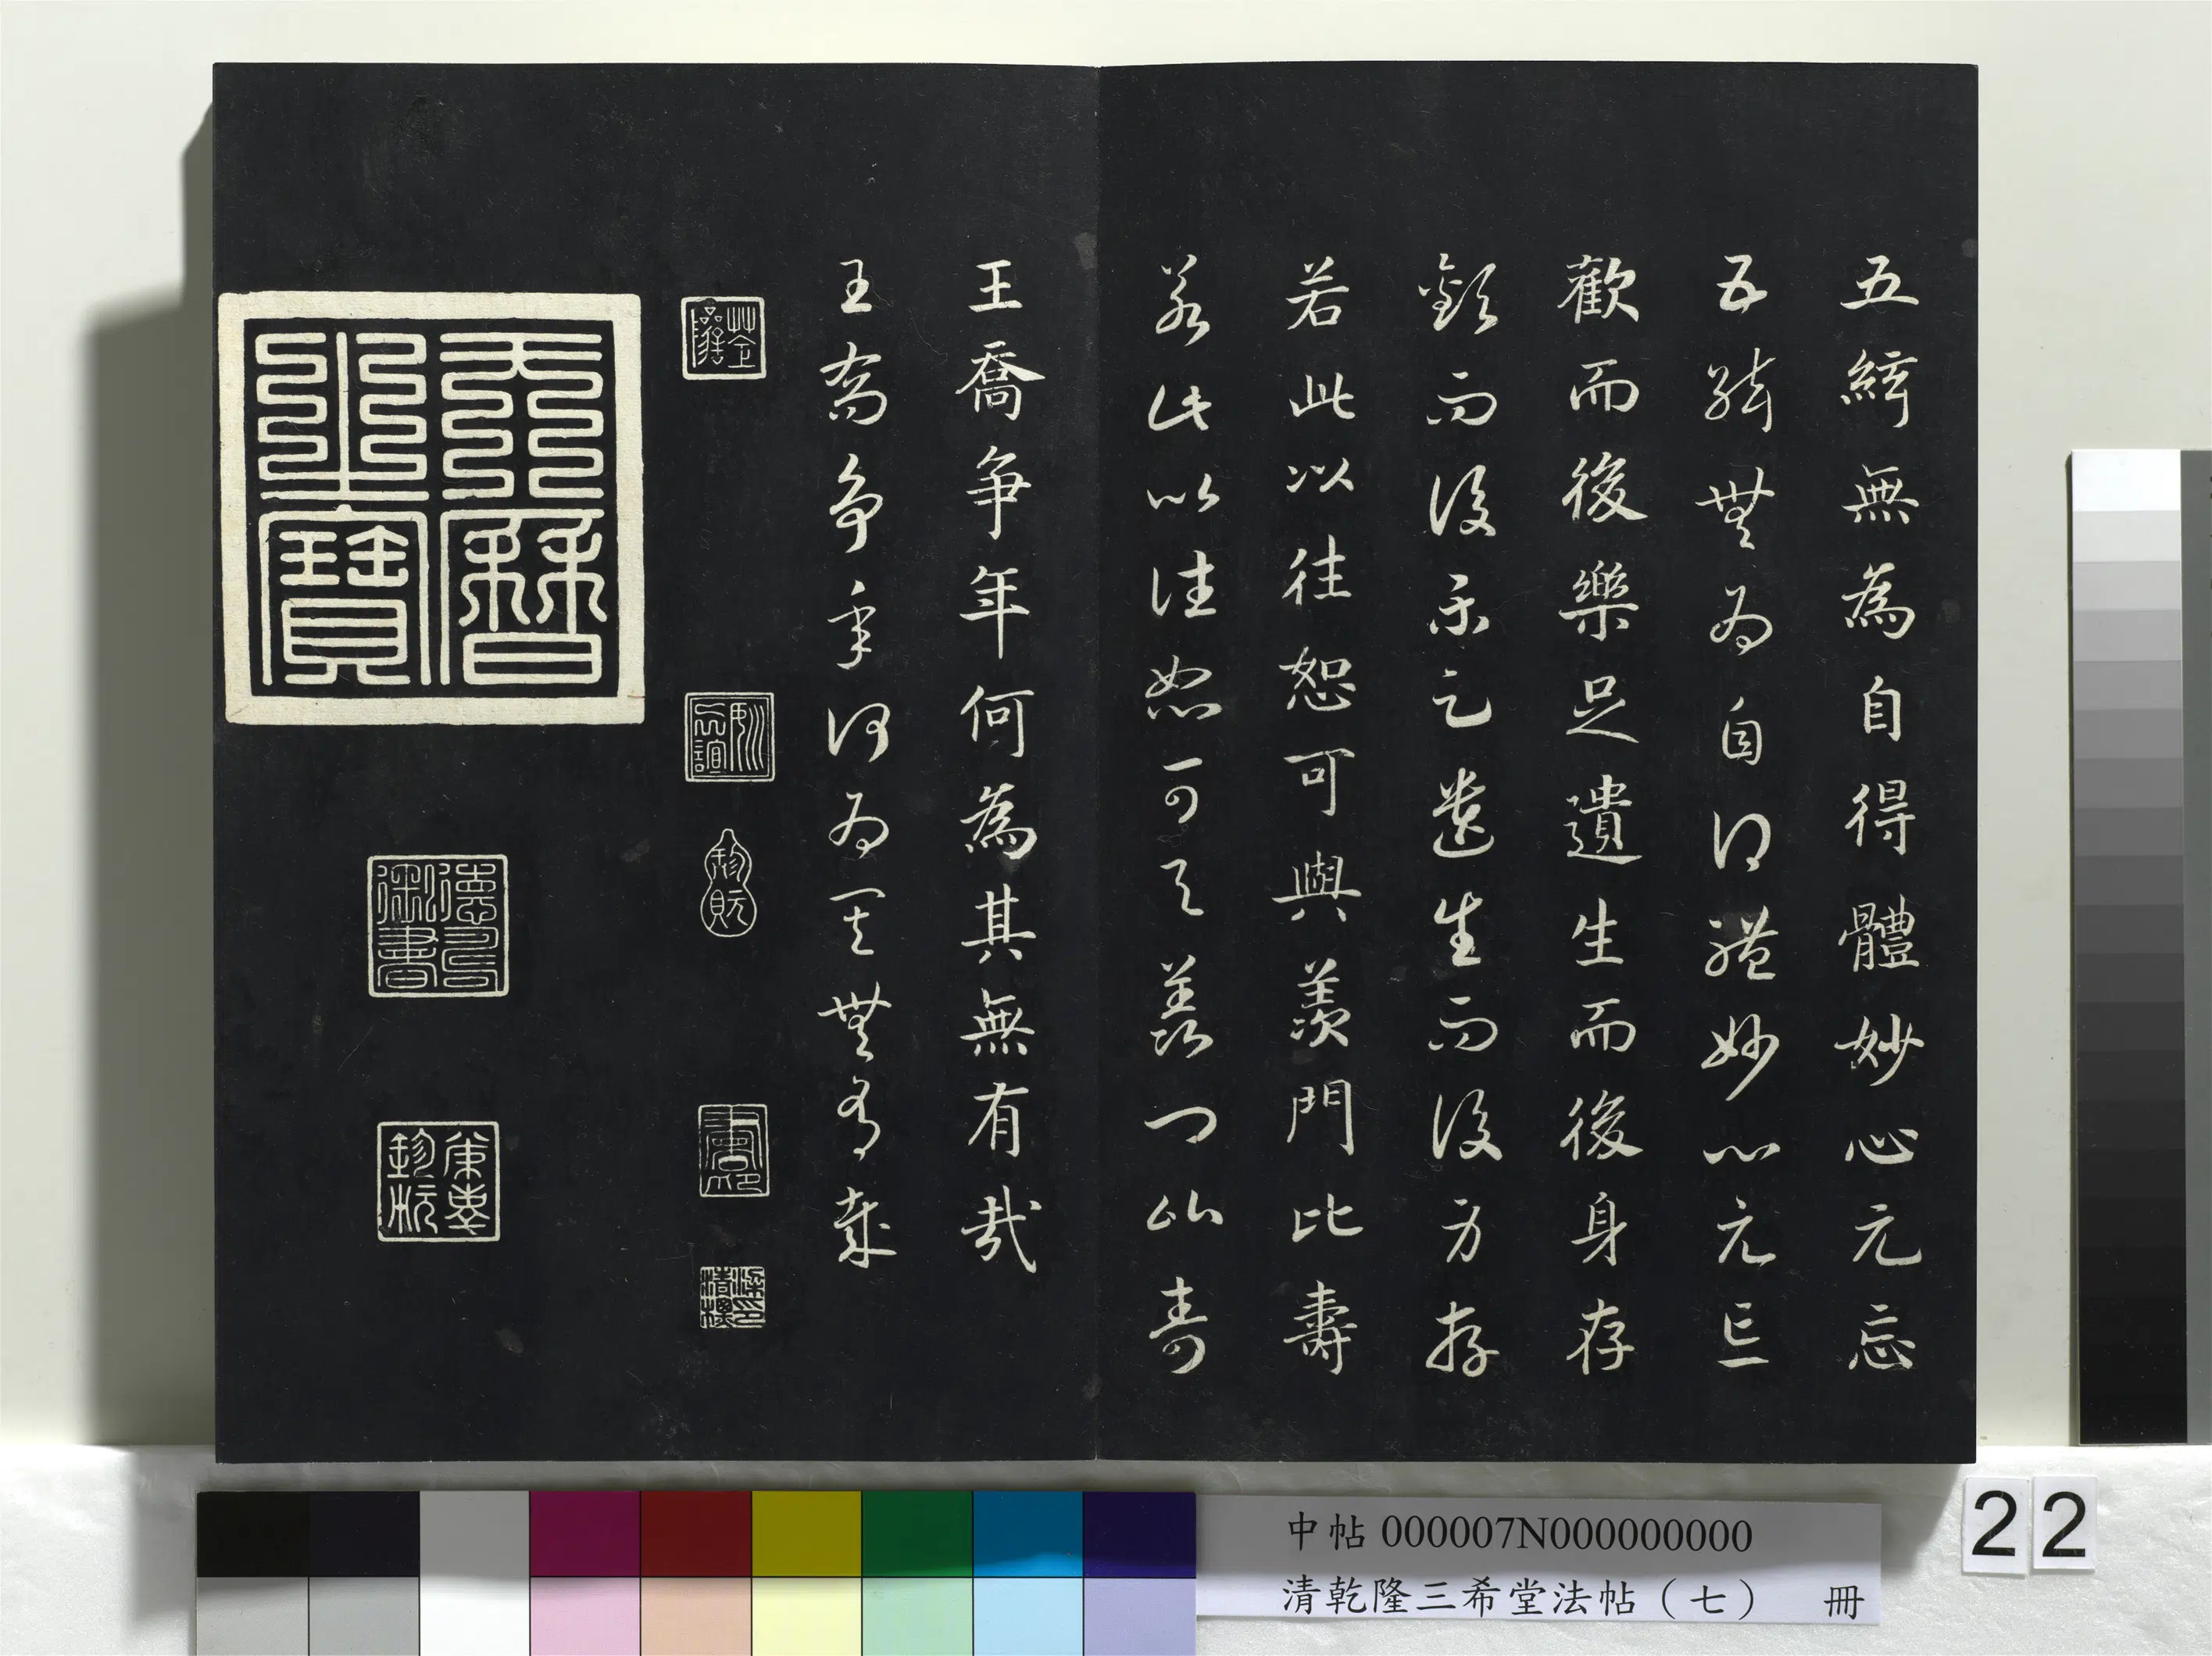 五絃無為自得體妙心元忘
五絃無為自得體妙心元忘
歡而後樂足遺生而後身存
歡而後樂足遺生而後身存
若此以往恕可與羨門比壽
若此以往恕可與羨門比壽
王喬爭年何為其無有哉
王喬爭年何為其無有哉
天曆之寶
中帖 000007N000000000
清乾隆三希堂法帖（七） 冊
22